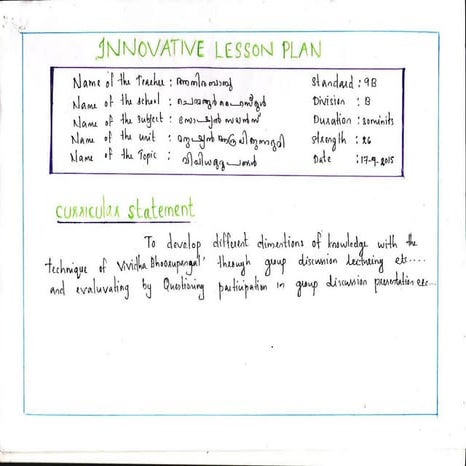 INNOVATIVE LESSON PLAN
Name of the Teacher : Standard : 9B
Name of the school : Division : B
Name of the subject : Duration : 30minits
Name of the unit : strength : 26
Name of the Topic : Date : 17-9-2015
curricular statement
To develop different dimentions of knowledge with the
technique of 'Vividha Bhoorupangal' through group discussion lecturing etc.....
and evaluvating by Questioning participation in group discussion presentation etc...